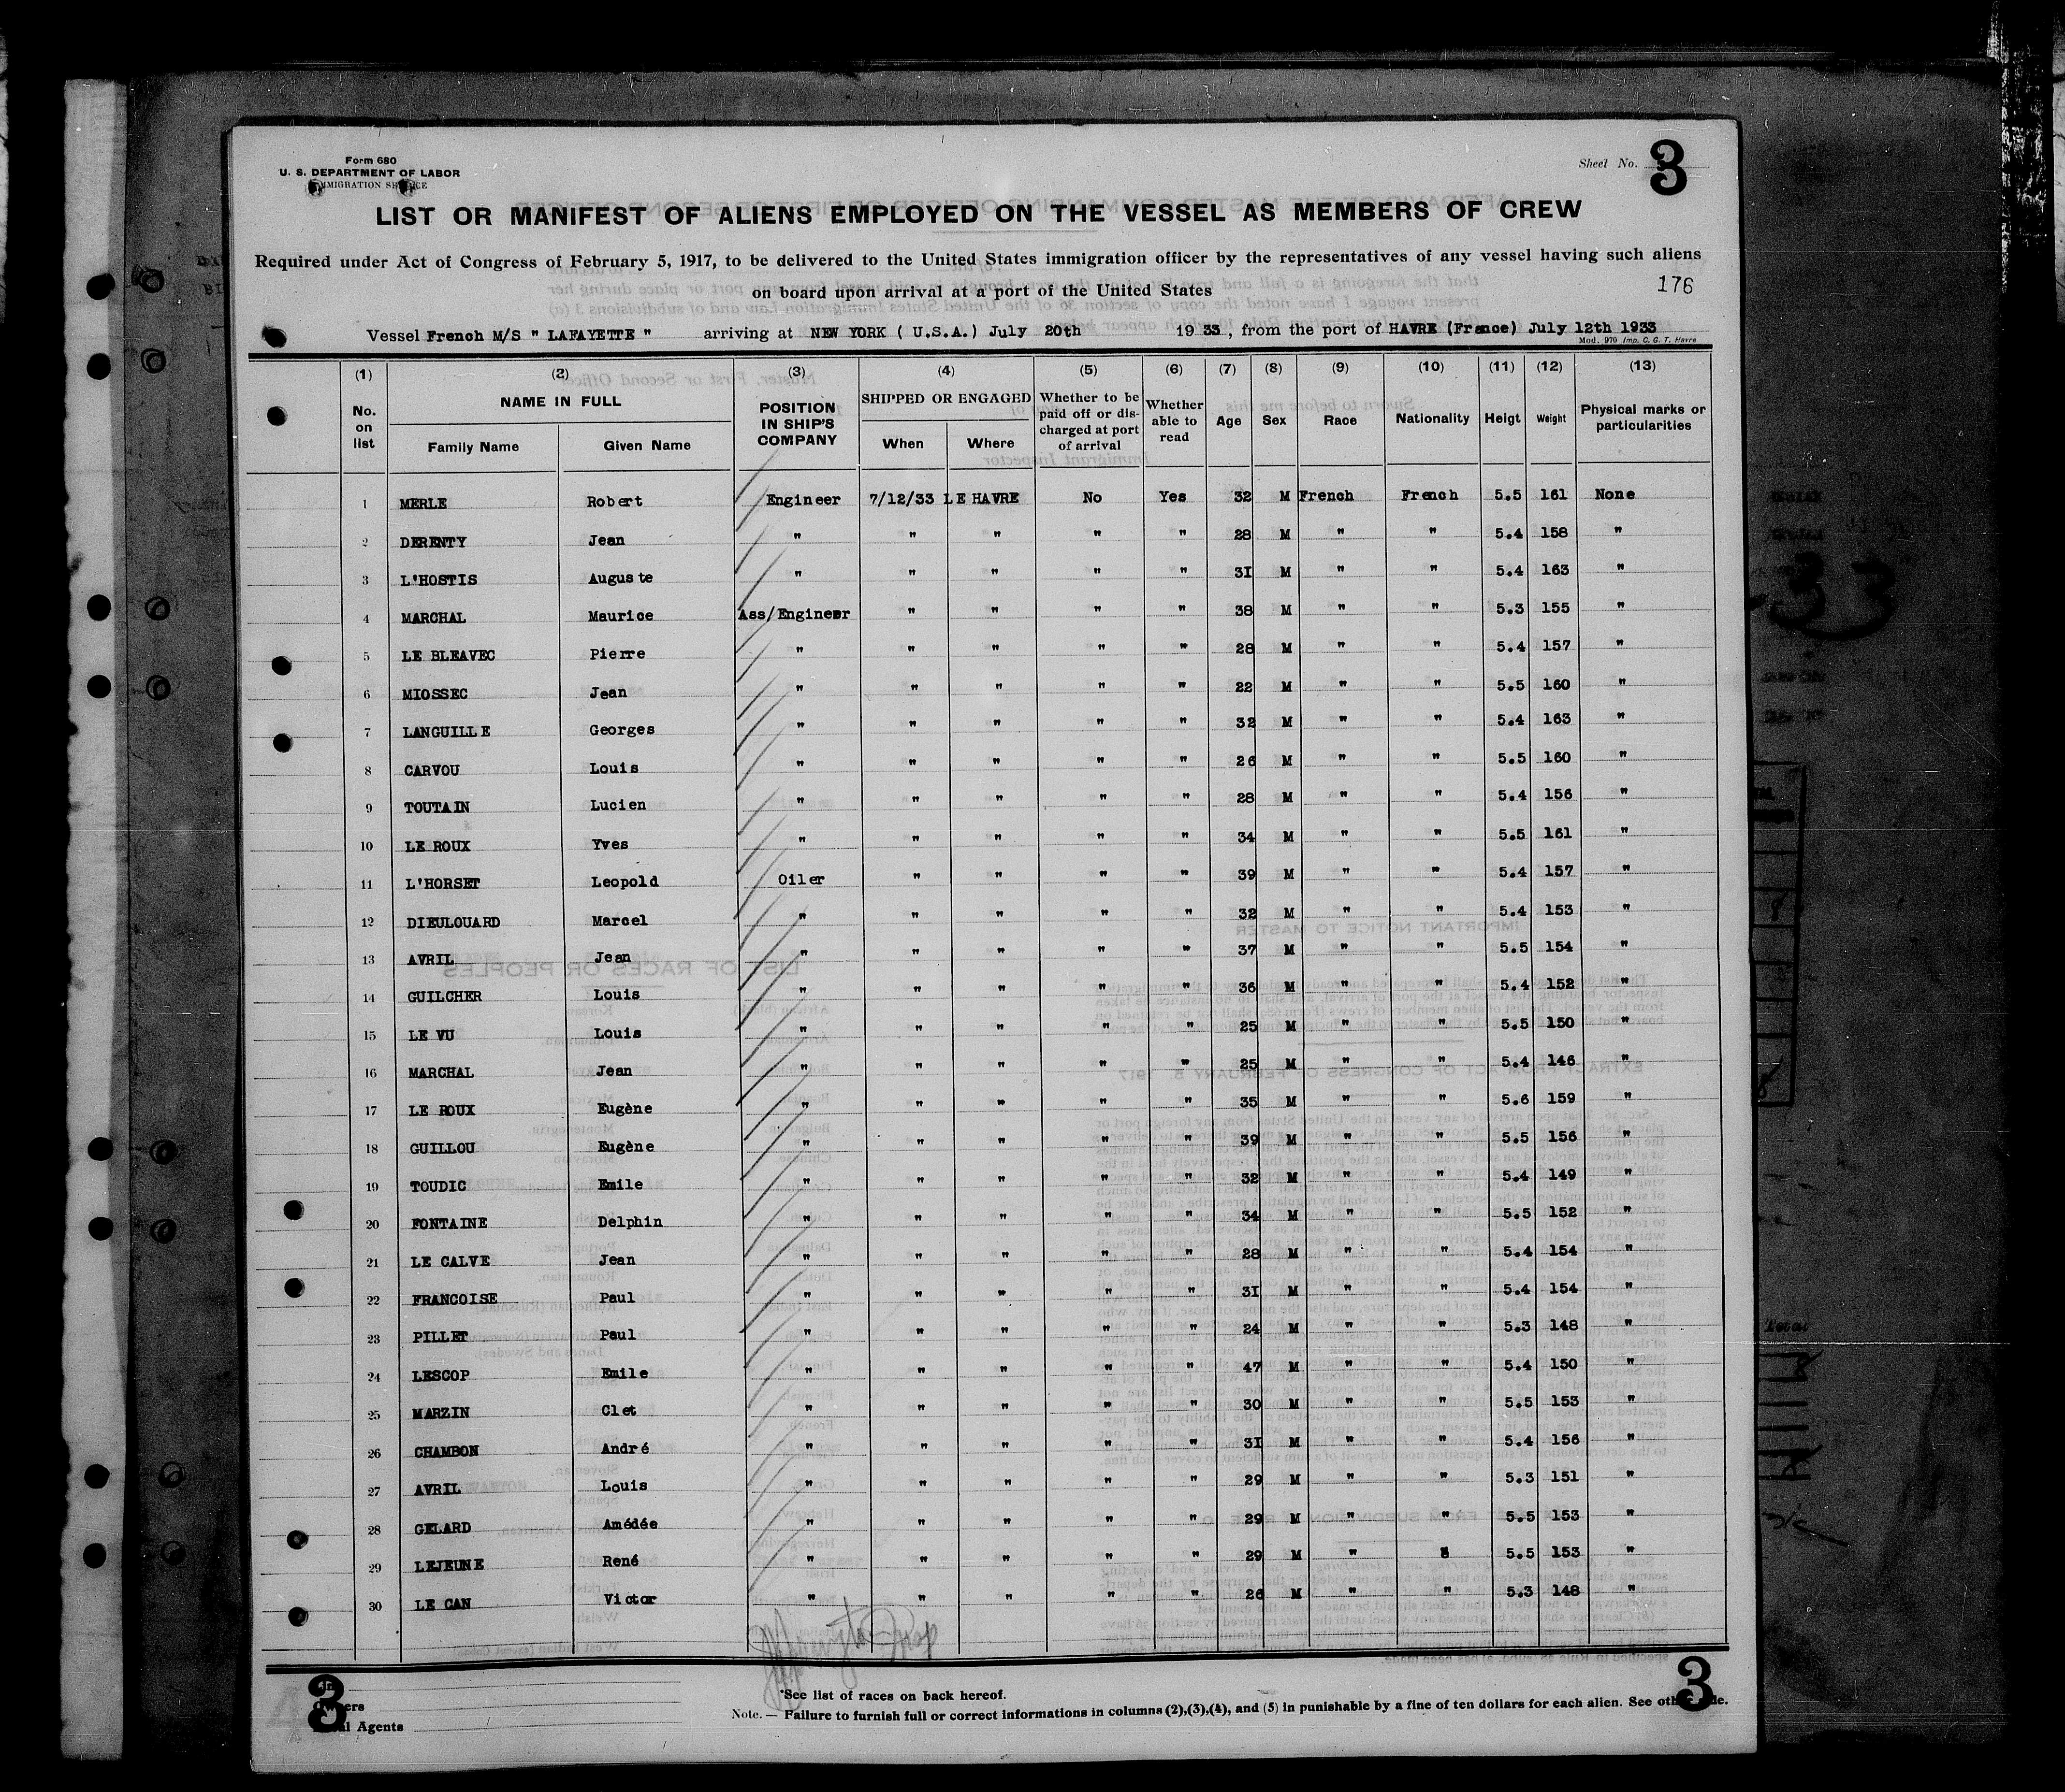 Form 680
U. S. DEPARTMENT OF LABOR
Sheet No. 3
LIST OR MANIFEST OF ALIENS EMPLOYED ON THE VESSEL AS MEMBERS OF CREW
Required under Act of Congress of February 5, 1917, to be delivered to the United States immigration officer by the representatives of any vessel having such aliens
on board upon arrival at a port of the United States
176
Vessel French M/S " LAFAYETTE " arriving at NEW YORK ( U.S.A.) July 20th 19 33 , from the port of HAVRE (France) July 12th 1933
Mod. 970 Imp. C. G. T. Havre
(1) (2) (3) (4) (5) (6) (7) (8) (9) (10) (11) (12) (13)
No. on list NAME IN FULL Family Name Given Name POSITION IN SHIP'S COMPANY SHIPPED OR ENGAGED When Where Whether to be paid off or discharged at port of arrival Whether able to read Age Sex Race Nationality Heigt Weight Physical marks or particularities
1 MERLE Robert Engineer 7/12/33 LE HAVRE No Yes 32 M French French 5.5 161 None
2 DERENTY Jean " " " " " 28 M " " 5.4 158 "
3 L'HOSTIS Auguste " " " " " 31 M " " 5.4 163 "
4 MARCHAL Maurice Ass/Engineer " " " " 38 M " " 5.3 155 "
5 LE BLEAVEC Pierre " " " " " 28 M " " 5.4 157 "
6 MIOSSEC Jean " " " " " 22 M " " 5.5 160 "
7 LANGUILLE Georges " " " " " 32 M " " 5.4 163 "
8 CARVOU Louis " " " " " 26 M " " 5.5 160 "
9 TOUTAIN Lucien " " " " " 28 M " " 5.4 156 "
10 LE ROUX Yves " " " " " 34 M " " 5.5 161 "
11 L'HORSET Leopold Oiler " " " " 39 M " " 5.4 157 "
12 DIEULOUARD Marcel " " " " " 32 M " " 5.4 153 "
13 AVRIL Jean " " " " " 37 M " " 5.5 154 "
14 GUILCHER Louis " " " " " 36 M " " 5.4 152 "
15 LE VU Louis " " " " " 25 M " " 5.5 150 "
16 MARCHAL Jean " " " " " 25 M " " 5.4 146 "
17 LE ROUX Eugène " " " " " 35 M " " 5.6 159 "
18 GUILLOU Eugène " " " " " 39 M " " 5.5 156 "
19 TOUDIC Emile " " " " " 32 M " " 5.4 149 "
20 FONTAINE Delphin " " " " " 34 M " " 5.5 152 "
21 LE CALVE Jean " " " " " 28 M " " 5.4 154 "
22 FRANCOISE Paul " " " " " 31 M " " 5.4 154 "
23 PILLET Paul " " " " " 24 M " " 5.3 148 "
24 LESCOP Emile " " " " " 47 M " " 5.4 150 "
25 MARZIN Clet " " " " " 30 M " " 5.5 153 "
26 CHAMBON André " " " " " 31 M " " 5.4 156 "
27 AVRIL Louis " " " " " 29 M " " 5.3 151 "
28 GELARD Amédée " " " " " 29 M " " 5.5 153 "
29 LEJEUNE René " " " " " 29 M " " 5.5 153 "
30 LE CAN Victor " " " " " 26 M " " 5.3 148 "
3 Agents
*See list of races on back hereof.
Note. — Failure to furnish full or correct informations in columns (2),(3),(4), and (5) in punishable by a fine of ten dollars for each alien. See
3